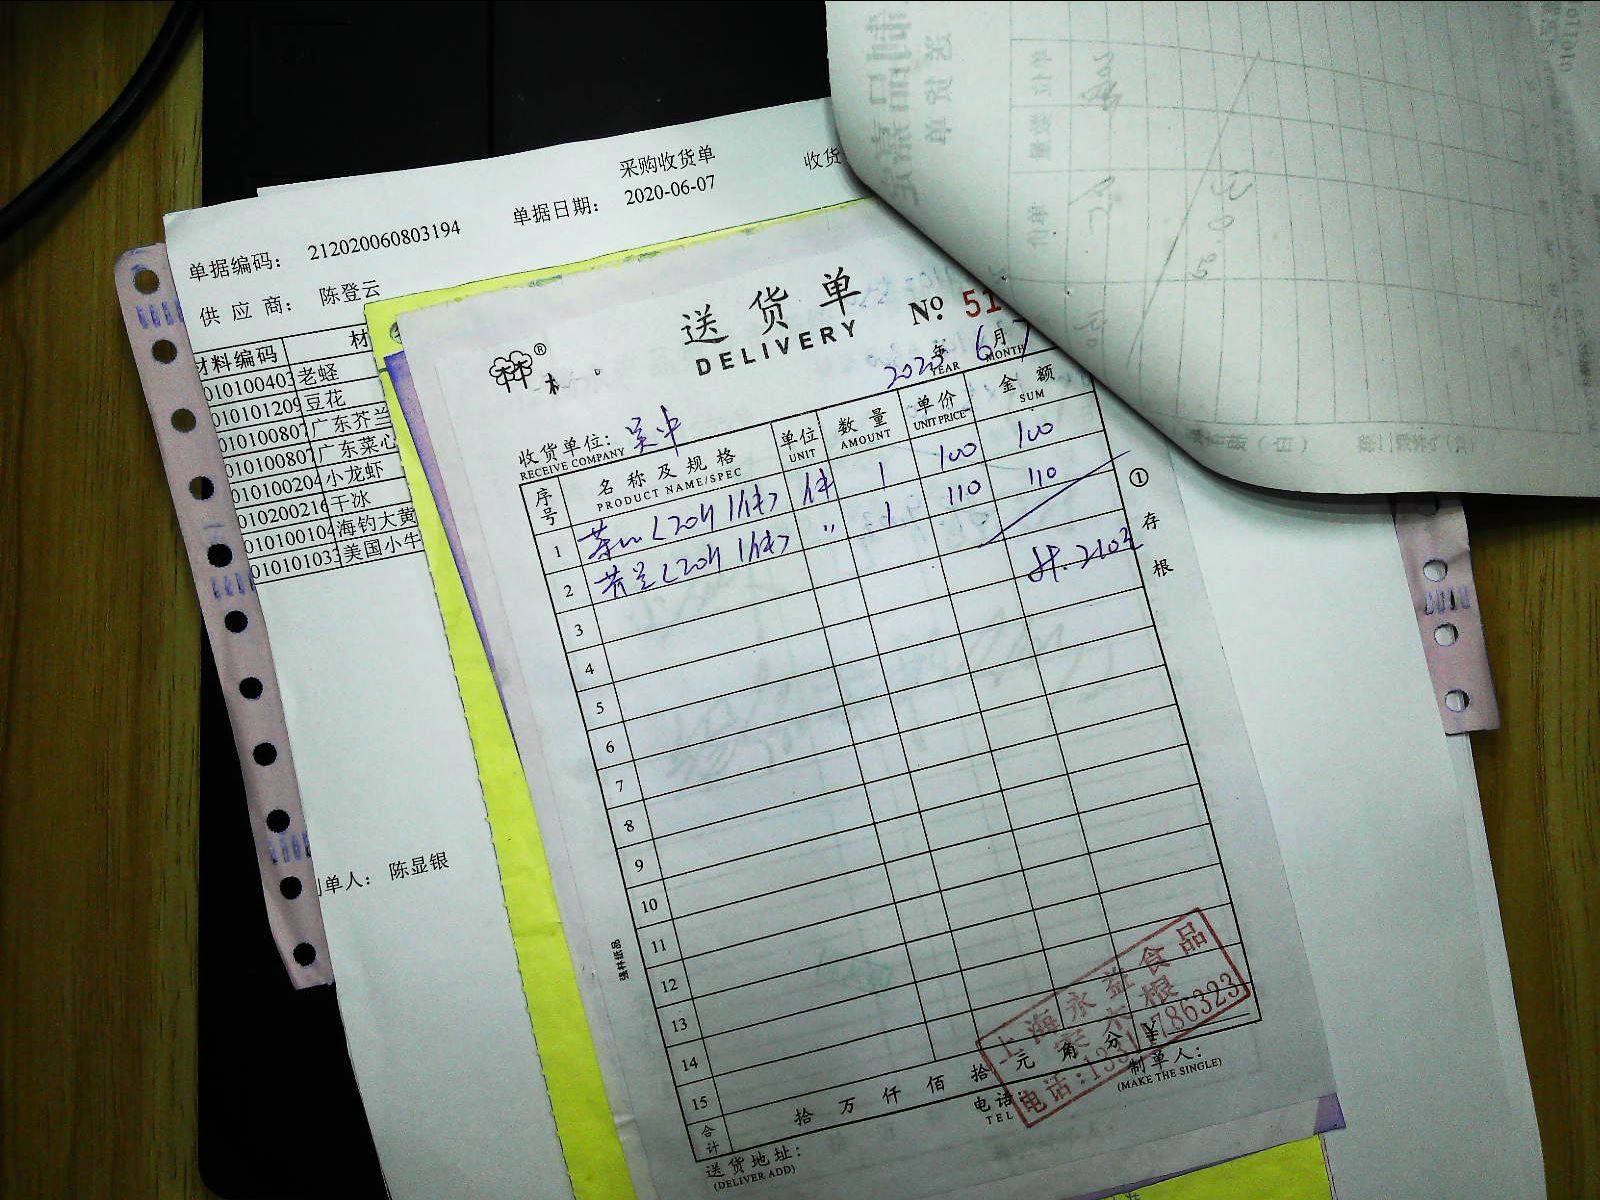 采购收货单
收货
单据编码： 212020060803194
单据日期： 2020-06-07
供 应 商： 陈登云
材料编码 材
010100403 老蛏
010101209 豆花
010100807 广东芥兰
010100807 广东菜心
010100204 小龙虾
010200216 干冰
010100104 海钓大黄
010101033 美国小牛
制单人： 陈显银
送 货 单
DELIVERY
No 51
年 6月 7
YEAR MONTH
收货单位： 吴中
RECEIVE COMPANY
序号 名 称 及 规 格 单位 数 量 单价 金 额
PRODUCT NAME/SPEC UNIT AMOUNT UNIT PRICE SUM
1 (20斤1件) 件 1 100 100
2 (20斤1件) 〃 1 110 110
210元
3
4
5
6
7
8
9
10
11
12
13
14
15
合计 拾 万 仟 佰 拾 元 角 分 ¥
① 存 根
强林纸品
上海永益食品
电话:13 786323
电话：
TEL
制单人：
(MAKE THE SINGLE)
送货地址：
(DELIVER ADD)